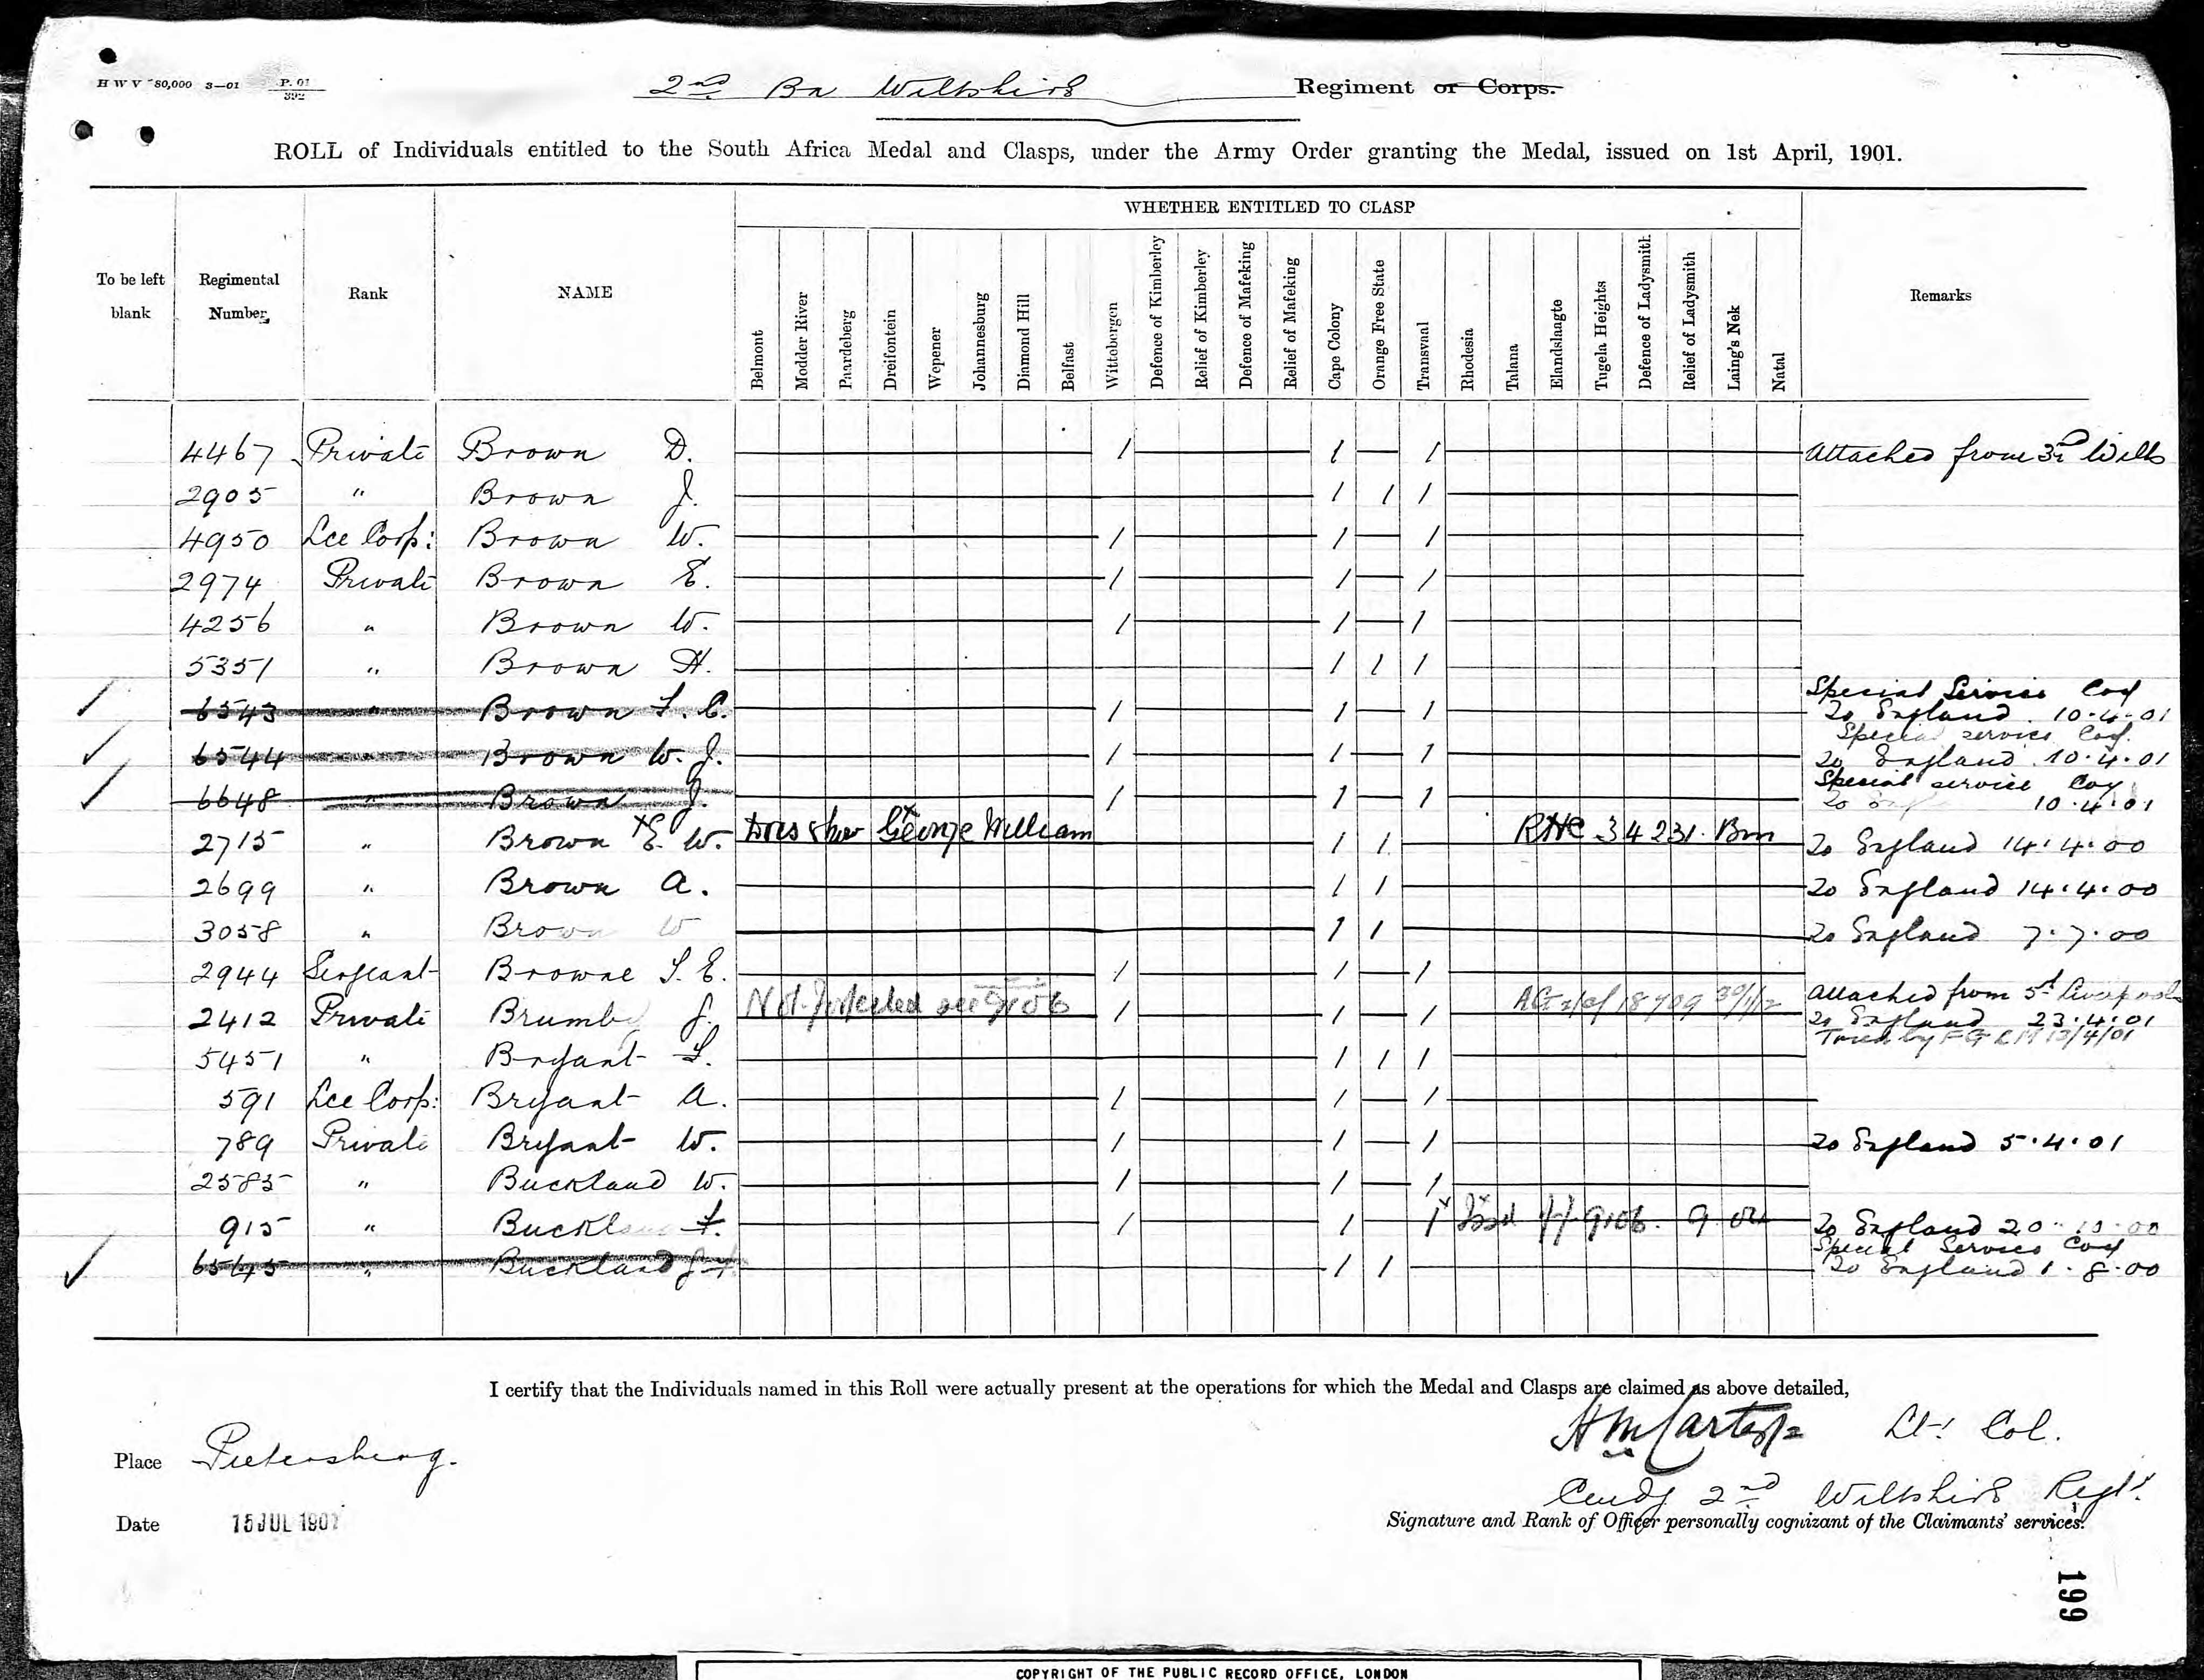 H W V 80,000 3—01 P. 01
392
2nd Bn Wiltshire Regiment or Corps.
ROLL of Individuals entitled to the South Africa Medal and Clasps, under the Army Order granting the Medal, issued on 1st April, 1901.
WHETHER ENTITLED TO CLASP
To be left blank Regimental Number Rank NAME Belmont Modder River Paardeberg Dreifontein Wepener Johannesburg Diamond Hill Belfast Wittebergen Defence of Kimberley Relief of Kimberley Defence of Mafeking Relief of Mafeking Cape Colony Orange Free State Transvaal Rhodesia Talana Elandslaagte Tugela Heights Defence of Ladysmith Relief of Ladysmith Laing's Nek Natal Remarks
4467 Private Brown D. 1 1 1 Attached from 3rd Wilts
2905 " Brown J. 1 1 1
4950 Lce Corp: Brown W. 1 1 1
2974 Private Brown E. 1 1 1
4256 " Brown W. 1 1 1
5351 " Brown H. 1 1 1
6543 " Brown F. C. 1 1 1 Special Service Coy
To England 10.4.01
6544 " Brown W. J. 1 1 1 Special service Coy.
To England 10.4.01
6648 " Brown J. 1 1 1 Special service Coy
To 10.4.01
2715 " Brown E. W. George William 1 1 34231 To England 14.4.00
2699 " Brown A. 1 1 To England 14.4.00
3058 " Brown W 1 1 To England 7.7.00
2944 Sergeant Browne S. E. 1 1 1
2412 Private Brumby J. Not see 9106 1 1 1 18709 30/1/12 Attached from 5th Liverpools
To England 23.4.01
Tried by F G C M 13/4/01
5451 " Bryant F. 1 1 1
591 Lce Corp: Bryant A. 1 1 1
789 Private Bryant W. 1 1 1 To England 5.4.01
2585 " Buckland W. 1 1 1
915 " Buckland F. 1 1 1 Issd 9106. To England 20.10.00
6545 " Buckland J. F. 1 1 Special Service Coy
To England 1.8.00
I certify that the Individuals named in this Roll were actually present at the operations for which the Medal and Clasps are claimed as above detailed,
H M Carter Lt. Col.
Place Pietersberg.
Comdg 2nd Wiltshire Regt.
Date 15 JUL 1901
Signature and Rank of Officer personally cognizant of the Claimants' services.
199
COPYRIGHT OF THE PUBLIC RECORD OFFICE, LONDON